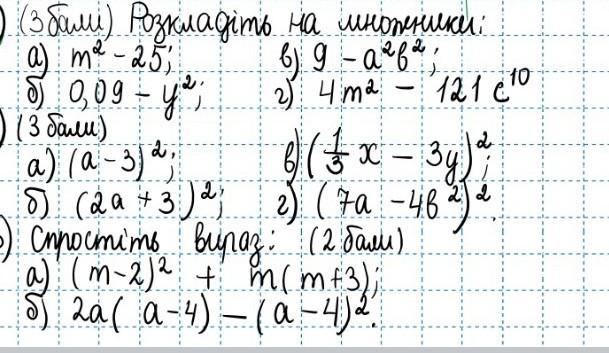 ) (3 бали) Розкладіть на множники:
а) m² - 25; в) 9 - a²b²;
б) 0,09 - y²; г) 4m² - 121 c¹⁰
) (3 бали)
а) (a - 3)²; в) (1/3 x - 3y)²;
б) (2a + 3)²; г) (7a - 4b²)².
) Спростіть вираз: (2 бали)
а) (m-2)² + m(m+3);
б) 2a(a-4) - (a-4)².